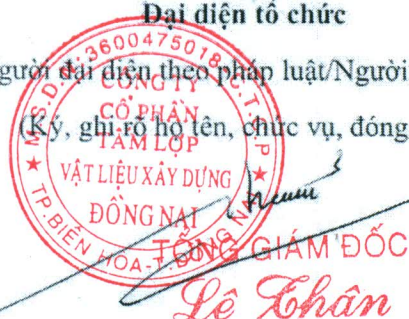 Đại diện tổ chức
gười đại diện theo pháp luật/Người
(Ký, ghi rõ họ tên, chức vụ, đóng
M.S.D.N:3600475018-C.T.C.P
CÔNG TY
CỔ PHẦN
TẤM LỢP
VẬT LIỆU XÂY DỰNG
ĐỒNG NAI
TP.BIÊN HÒA-T.ĐỒNG NAI
TỔNG GIÁM ĐỐC
Lê Thân